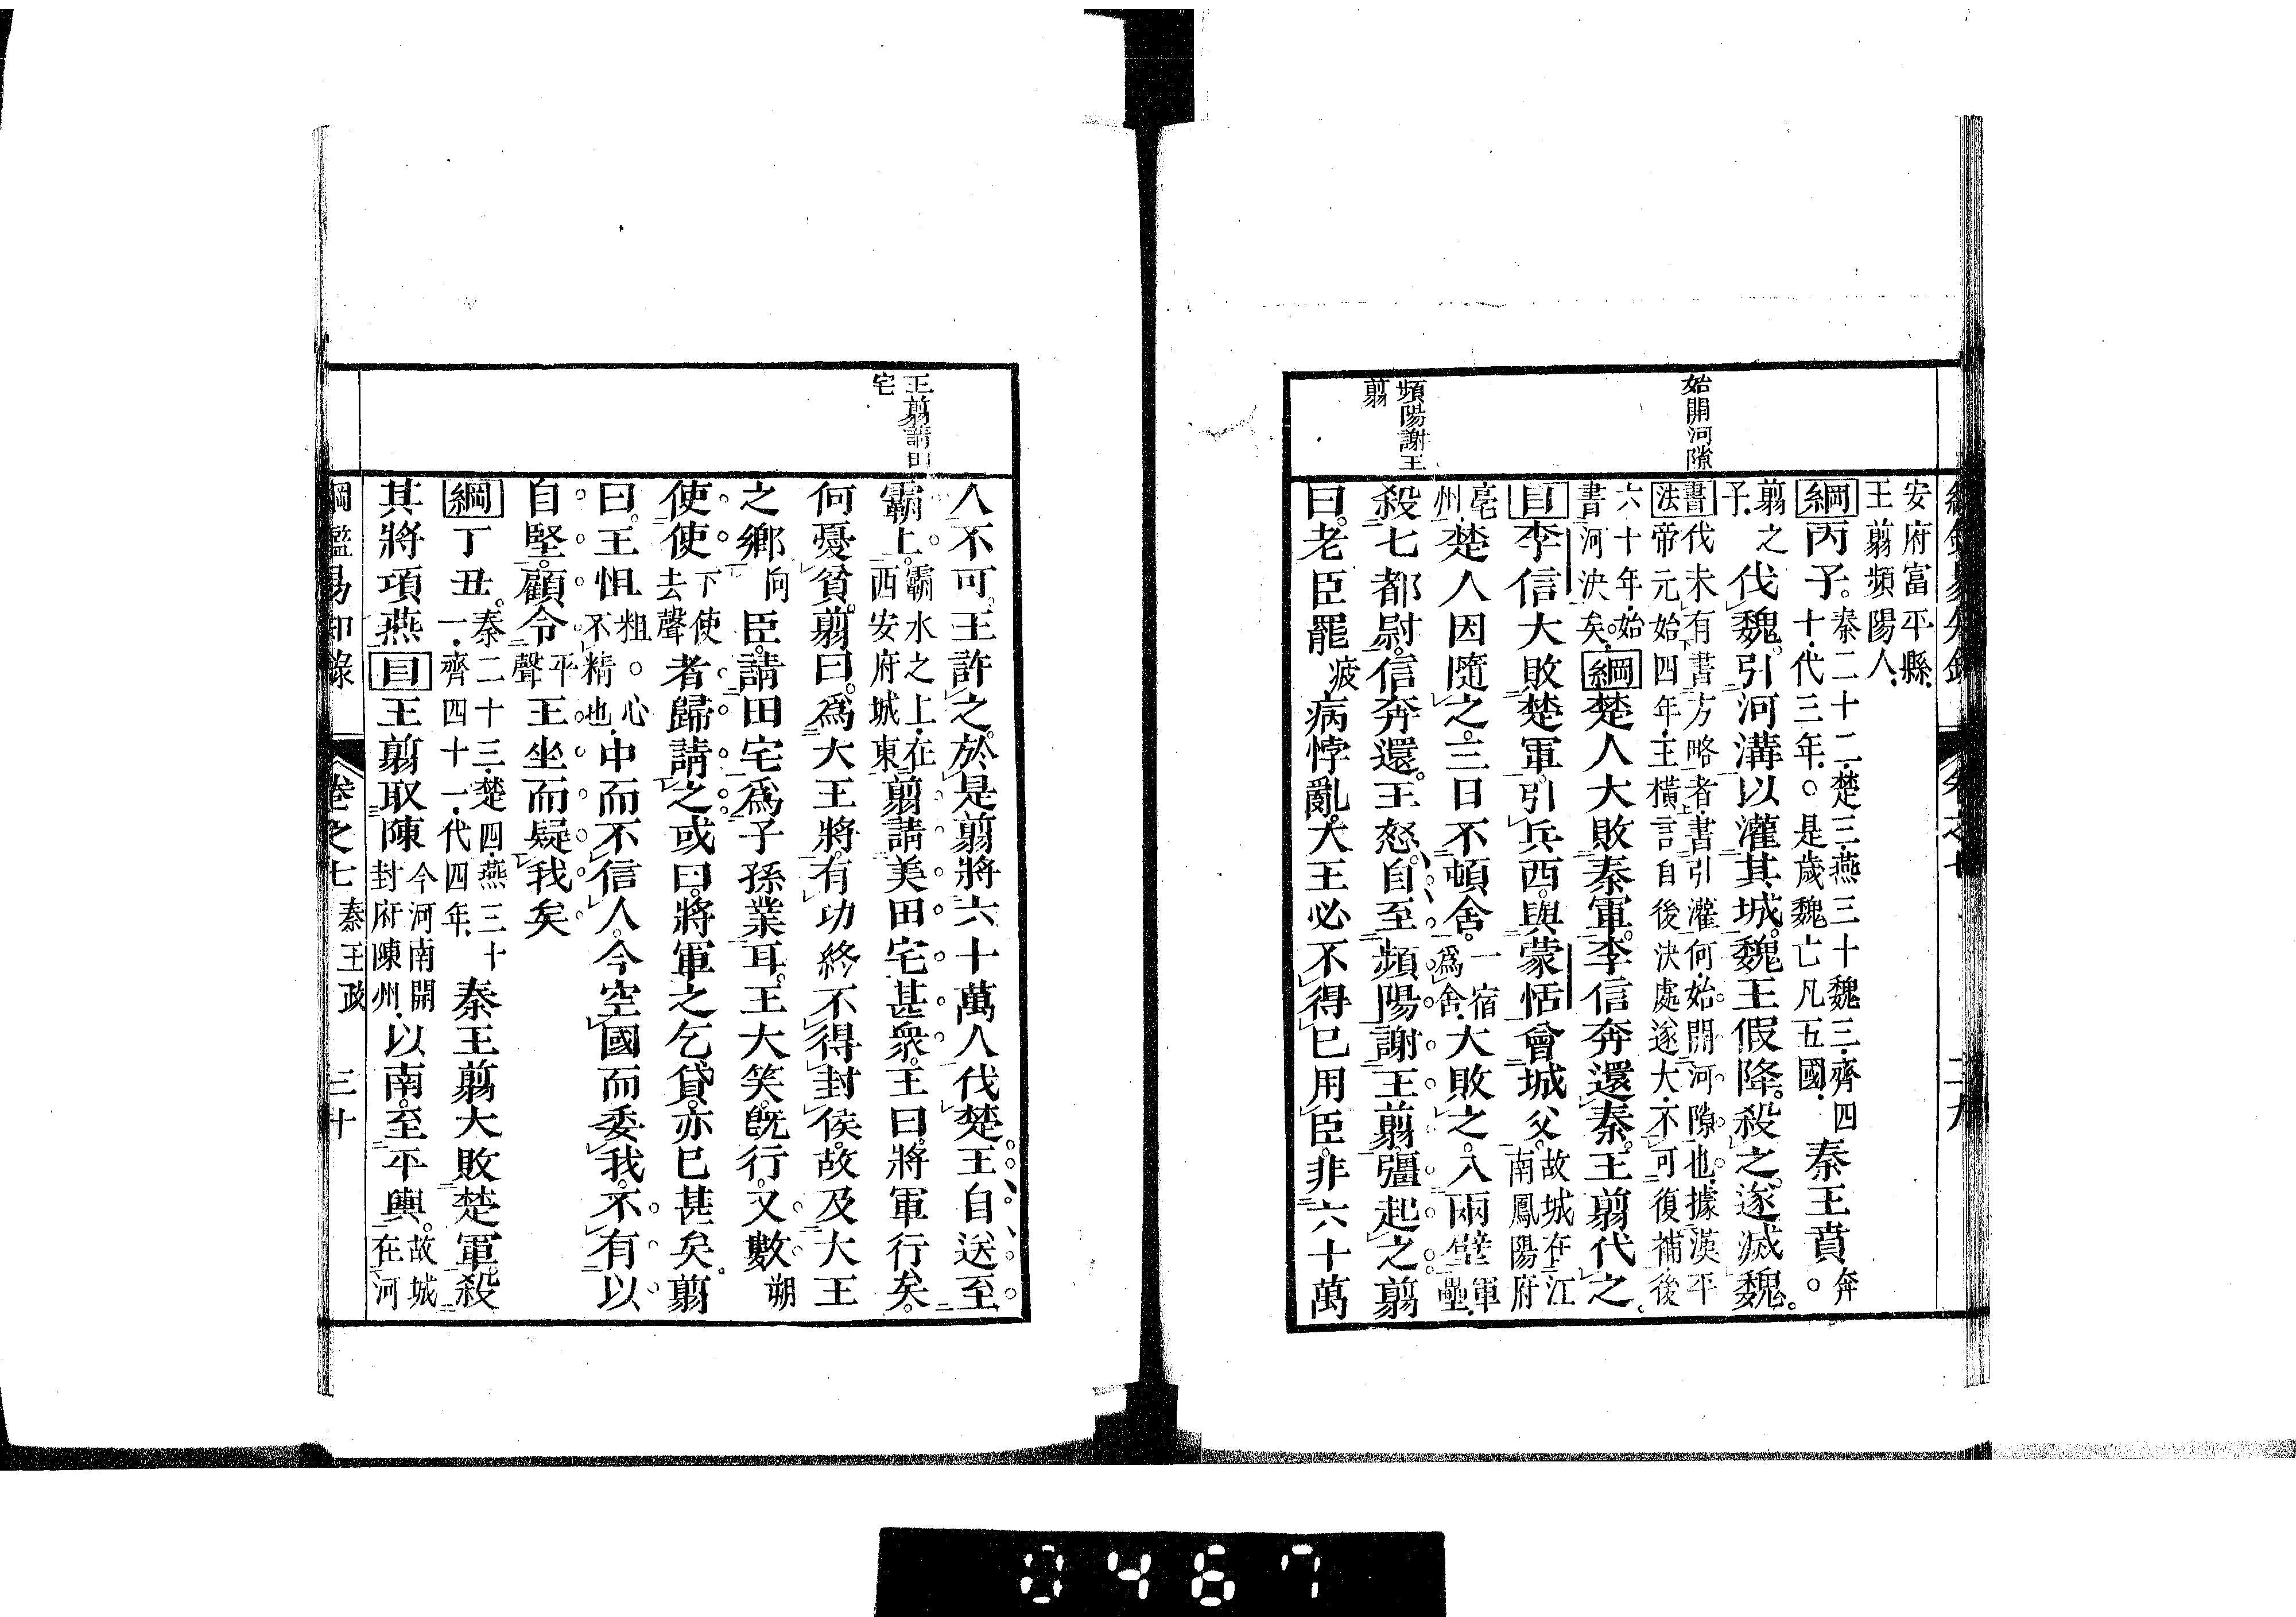 安府富平縣
王翦頻陽人
綱丙子秦二十二楚三燕三十魏三齊四十代三年○是歲魏亡凡五國秦王賁奔○
翦之子伐魏引河溝以灌其城魏王假降殺之遂滅魏
書法伐未有書方略者書引灌何始開河隙也據漢平帝元始四年王橫言自後決處遂大不可復補後
六十年始書河決矣綱楚人大敗秦軍李信奔還秦王翦代之
目李信大敗楚軍引兵西與蒙恬會城父故城在江南鳳陽府
亳州楚人因隨之三日不頓舍一宿爲舍大敗之入兩壁軍壘
殺七都尉信奔還王怒自至頻陽謝王翦彊起之翦
曰老臣罷疲病悖亂大王必不得已用臣非六十萬
始開河隙
頻陽謝王翦
人不可王許之於是翦將六十萬人伐楚王自送至
霸上霸水之上在西安府城東翦請美田宅甚衆王曰將軍行矣
何憂貧翦曰爲大王將有功終不得封侯故及大王
之鄉向臣請田宅爲子孫業耳王大笑旣行又數朔
使使下使去聲者歸請之或曰將軍之乞貸亦已甚矣翦
曰王怚粗○心不精也中而不信人今空國而委我不有以
自堅顧令平聲王坐而疑我矣
綱丁丑秦二十三楚四燕三十一齊四十一代四年秦王翦大敗楚軍殺
其將項燕目王翦取陳今河南開封府陳州以南至平輿故城在河
王翦請田宅
綱鑑易知錄 卷之七 秦王政 三十
0467